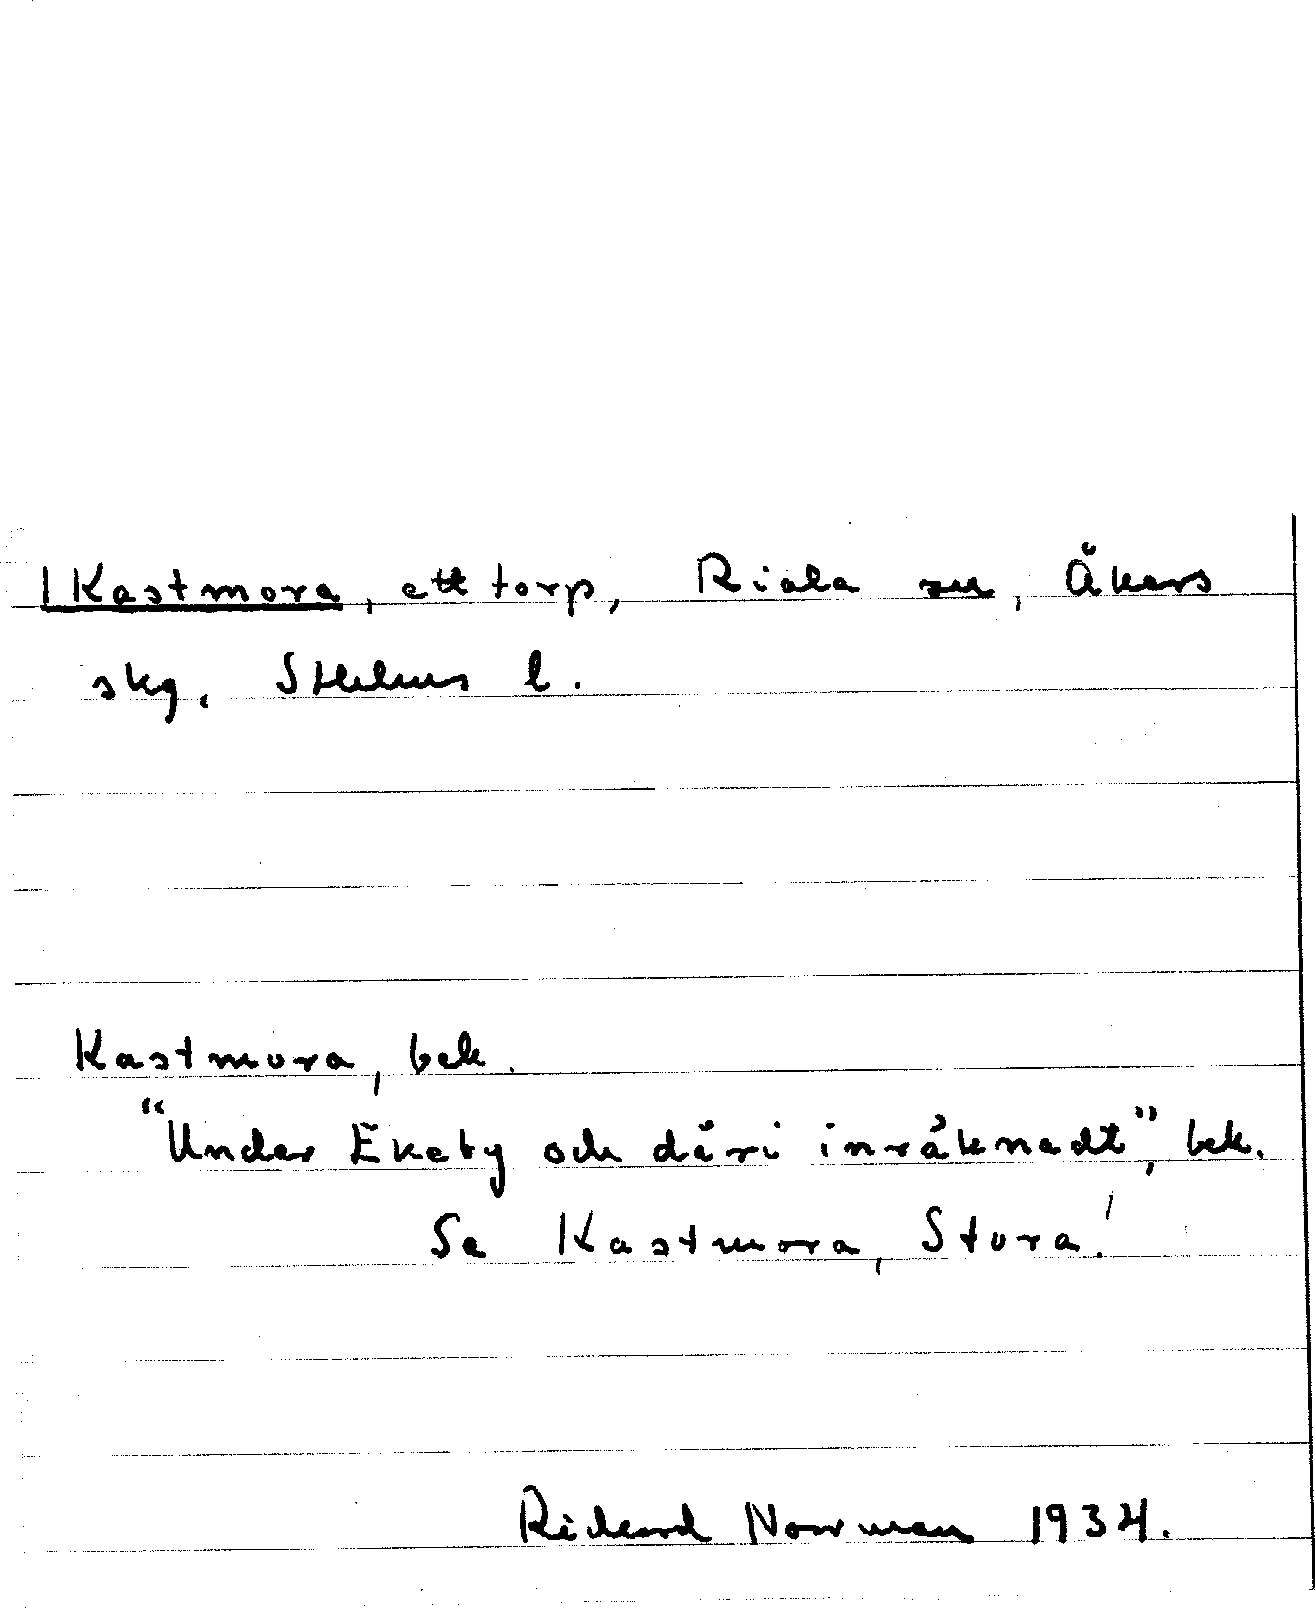 1 Kastmora, ett torp, Riala sn, Åkers
skg. Sthlms l.
Kastmora, bek.
"Under Ekeby och däri inräknadt", bek.
Se Kastmora, Stora!
Rickard Norrman 1934.